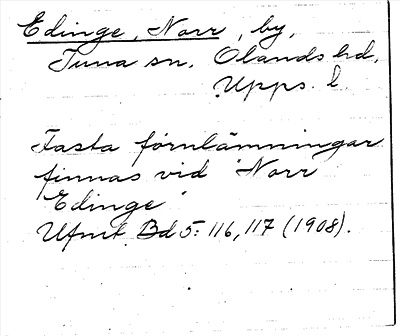 Edinge, Norr, by,
Tuna sn. Olands hd,
Upps. l.
Fasta fornlämningar
finnas vid "Norr
Edinge"
Ufmt. Bd 5: 116, 117 (1908).